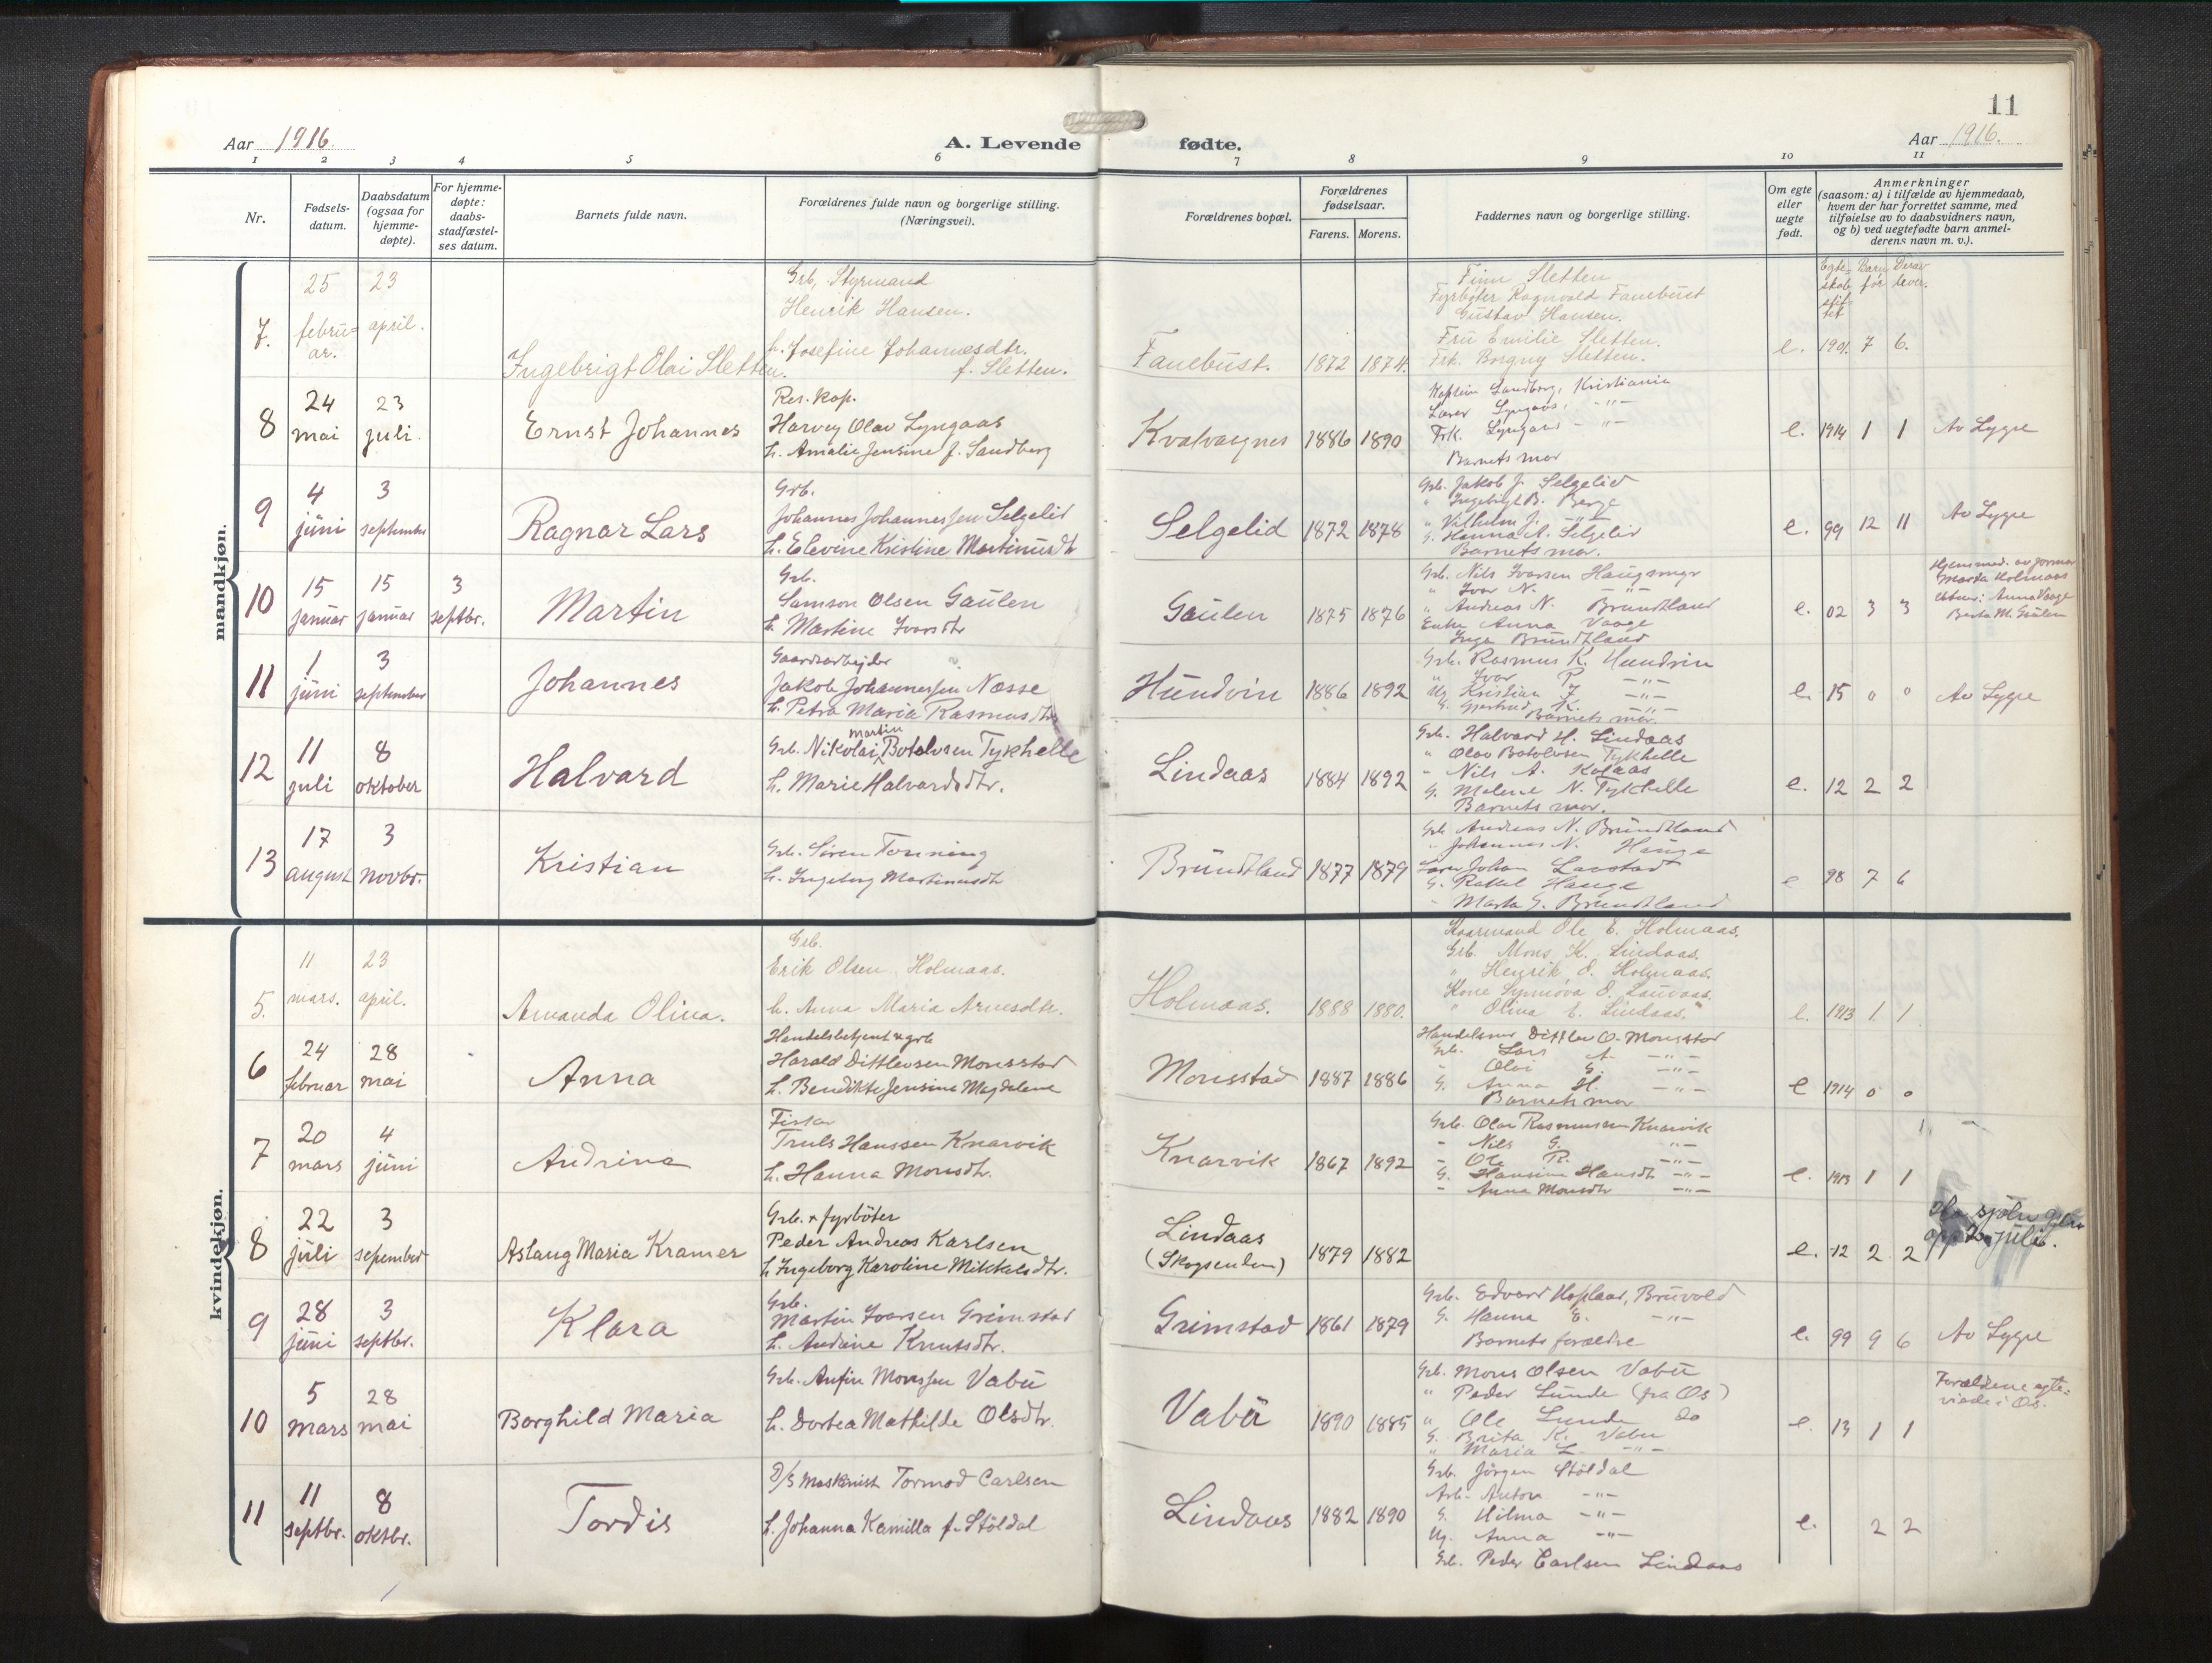 11
Aar 1916.
A. Levende fødte.
Aar 1916.
1 2 3 4 5 6 7 8 9 10 11
Nr.
Fødsels-
datum.
Daabsdatum
(ogsaa for
hjemme-
døpte).
For hjemme-
døpte:
daabs-
stadfæstel-
ses datum.
Barnets fulde navn.
Forældrenes fulde navn og borgerlige stilling.
(Næringsvei).
Forældrenes bopæl.
Forældrenes
fødselsaar.
Farens. Morens.
Faddernes navn og borgerlige stilling.
Om egte
eller
uegte
født.
Anmerkninger
(saasom: a) i tilfælde av hjemmedaab,
hvem der har forrettet samme, med
tilføielse av to daabsvidners navn,
og b) ved uegtefødte barn anmel-
derens navn m. v.).
Egte-
skab
stif-
tet
Barn
før
Derav
lever.
mandkjøn.
7.
25
febru=
ar.
23
april.
Ingebrigt Olai Sletten.
Grb, Styrmand
Henrik Hansen.
h. Josefine Johannesdtr.
f. Sletten.
Fanebust.
1872 1874.
Finn Sletten
Fyrbøter Ragnvald Fanebust
Gustav Hansen.
Fru Emilie Sletten.
Frk. Borgny Sletten.
e. 1901. 7 6.
8
24
mai
23
juli.
Ernst Johannes
Res. kap.
Harvey Olav Lyngaas
h. Amalie Jensine f. Sandberg
Kvalvaagnes
1886 1890
Kaptein Sandberg, Kristiania
Lærer Lyngaas, -"-
Frk. Lyngaas - -"-
Barnets mor
e. 1914 1 1 Av Lygre
9
4
juni
3
september
Ragnar Lars
Grb.
Johannes Johannessen Selgelid
h. Elevine Kristine Martinusdtr
Selgelid
1872 1878
Grb. Jakob J. Selgelid
" Ingebrigt B. Berge
" Vilhelm J. -"-
G. Hanna N. Selgelid
Barnets mor.
e. 99 12 11 Av Lygre
10
15
januar
15
januar
3
septbr.
Martin
Grb.
Samson Olsen Gaulen
h. Martine Ivarsdtr
Gaulen
1875 1876
Grb. Nils Ivarsen Haugsmyr
" Ivar N. -"-
" Andreas N. Brundtland
Enke Anna Vaage
Inga Brundtland
e. 02 3 3
Hjemmed. av jormor
Marta Holmaas
Anna Vaage
Berta M. Gaulen
11
1
juni
3
september
Johannes
Gaardsarbejder
Jakob Johannessen Næsse
h. Petra Maria Rasmusdtr
Hundvin
1886 1892
Grb. Rasmus K. Hundvin
" Ivar R. -"-
Ug. Kristian J -"-
G. Gjertrud K. -"-
Barnets mor.
e. 15 0 0 Av Lygre
12
11
juli
8
oktober
Halvard
martin
Grb. Nikolai Botolvsen Tykhelle
h. Marie Halvardsdtr.
Lindaas
1884 1892
Grb. Halvard H. Lindaas
" Olav Botolvsen Tykhelle
" Nils A. Kolaas
G. Malene N. Tykhelle
Barnets mor.
e. 12 2 2
13
17
august
3
novbr.
Kristian
Grb. Søren Tonning
h. Ingeborg Martinusdtr
Brundtland
1877 1879
Grb Andreas N. Brundtland
" Johannes N. Hauge
Johan
G. Rakel Hauge
- Marta G. Brundtland
e 98 7 6
kvindekjøn.
5.
11
mars.
23
april.
Amanda Olina.
Grb.
Erik Olsen Holmaas.
h. Anna Maria Arnesdtr.
Holmaas.
1888 1880.
Kaarmand Ole E. Holmaas.
Grb. Mons K. Lindaas.
" Henrik O. Holmaas.
Kone Synnøva O. Lauvaas.
" Olina E. Lindaas."
e. 1913 1. 1.
6
24
februar
28
mai
Anna
Handelsbetjent & grb
Harald Dittlevsen Monsstad
h. Bendikte Jensine Magdalene
Monsstad
1887 1886
Handelsm Dittlev O. Monsstad
Grb. Lars A. -"-
- Olai G. -"-
G. Anna H. -"-
Barnets mor
e 1914 0 0
7
20
mars
4
juni
Andrina
Fisker
Truls Hanssen Knarvik
h. Hanna Monsdtr.
Knarvik
1867 1892
Grb. Olav Rasmussen Knarvik
- Nils G. "-
- Ole R. -"-
G. Hansine Hansdtr -"-
- Anna Monsdtr -"-
e. 1913 1 1
8
22
juli
3
sepember
Aslaug Maria Kramer
Grb. & fyrböter
Peder Andreas Karlsen
h. Ingeborg Karoline Mikkelsdtr.
Lindaas
(Skogsenden)
1879 1882
e. -12 2 2
9
28
juni
3
septbr.
Klara
Grb.
Martin Ivarsen Grimstad
h. Andrine Knutsdtr.
Grimstad
1861 1879
Grb. Edvard Hoplaar, Bruvold
G. Hanna E. -"-
Barnets forældre
e. 99 9 6 Av Lygre
10
5
mars
28
mai
Borghild Maria
Grb. Anfin Monssen Vabø
h. Dortea Mathilde Olsdtr.
Vabø
1890 1885
Grb. Mons Olsen Vabø
" Peder Lunde (fra Os)
" Ole Lunde do
G. Brita K. Vabø
" Maria L. -"-
e. 13 1 1
Forældrene egte-
viede i Os.
11
11
septbr.
8
oktbr.
Tordis
D/S Maskinist Tormod Carlsen
h. Johanna Kamilla f. Støldal
Lindaas
1882 1890
Grb. Jörgen Støldal
Arb. Anton -"-
G. Hilma -"-
Ug. Anna -"-
Grb. Peder Carlsen Lindaas
e. 2 2